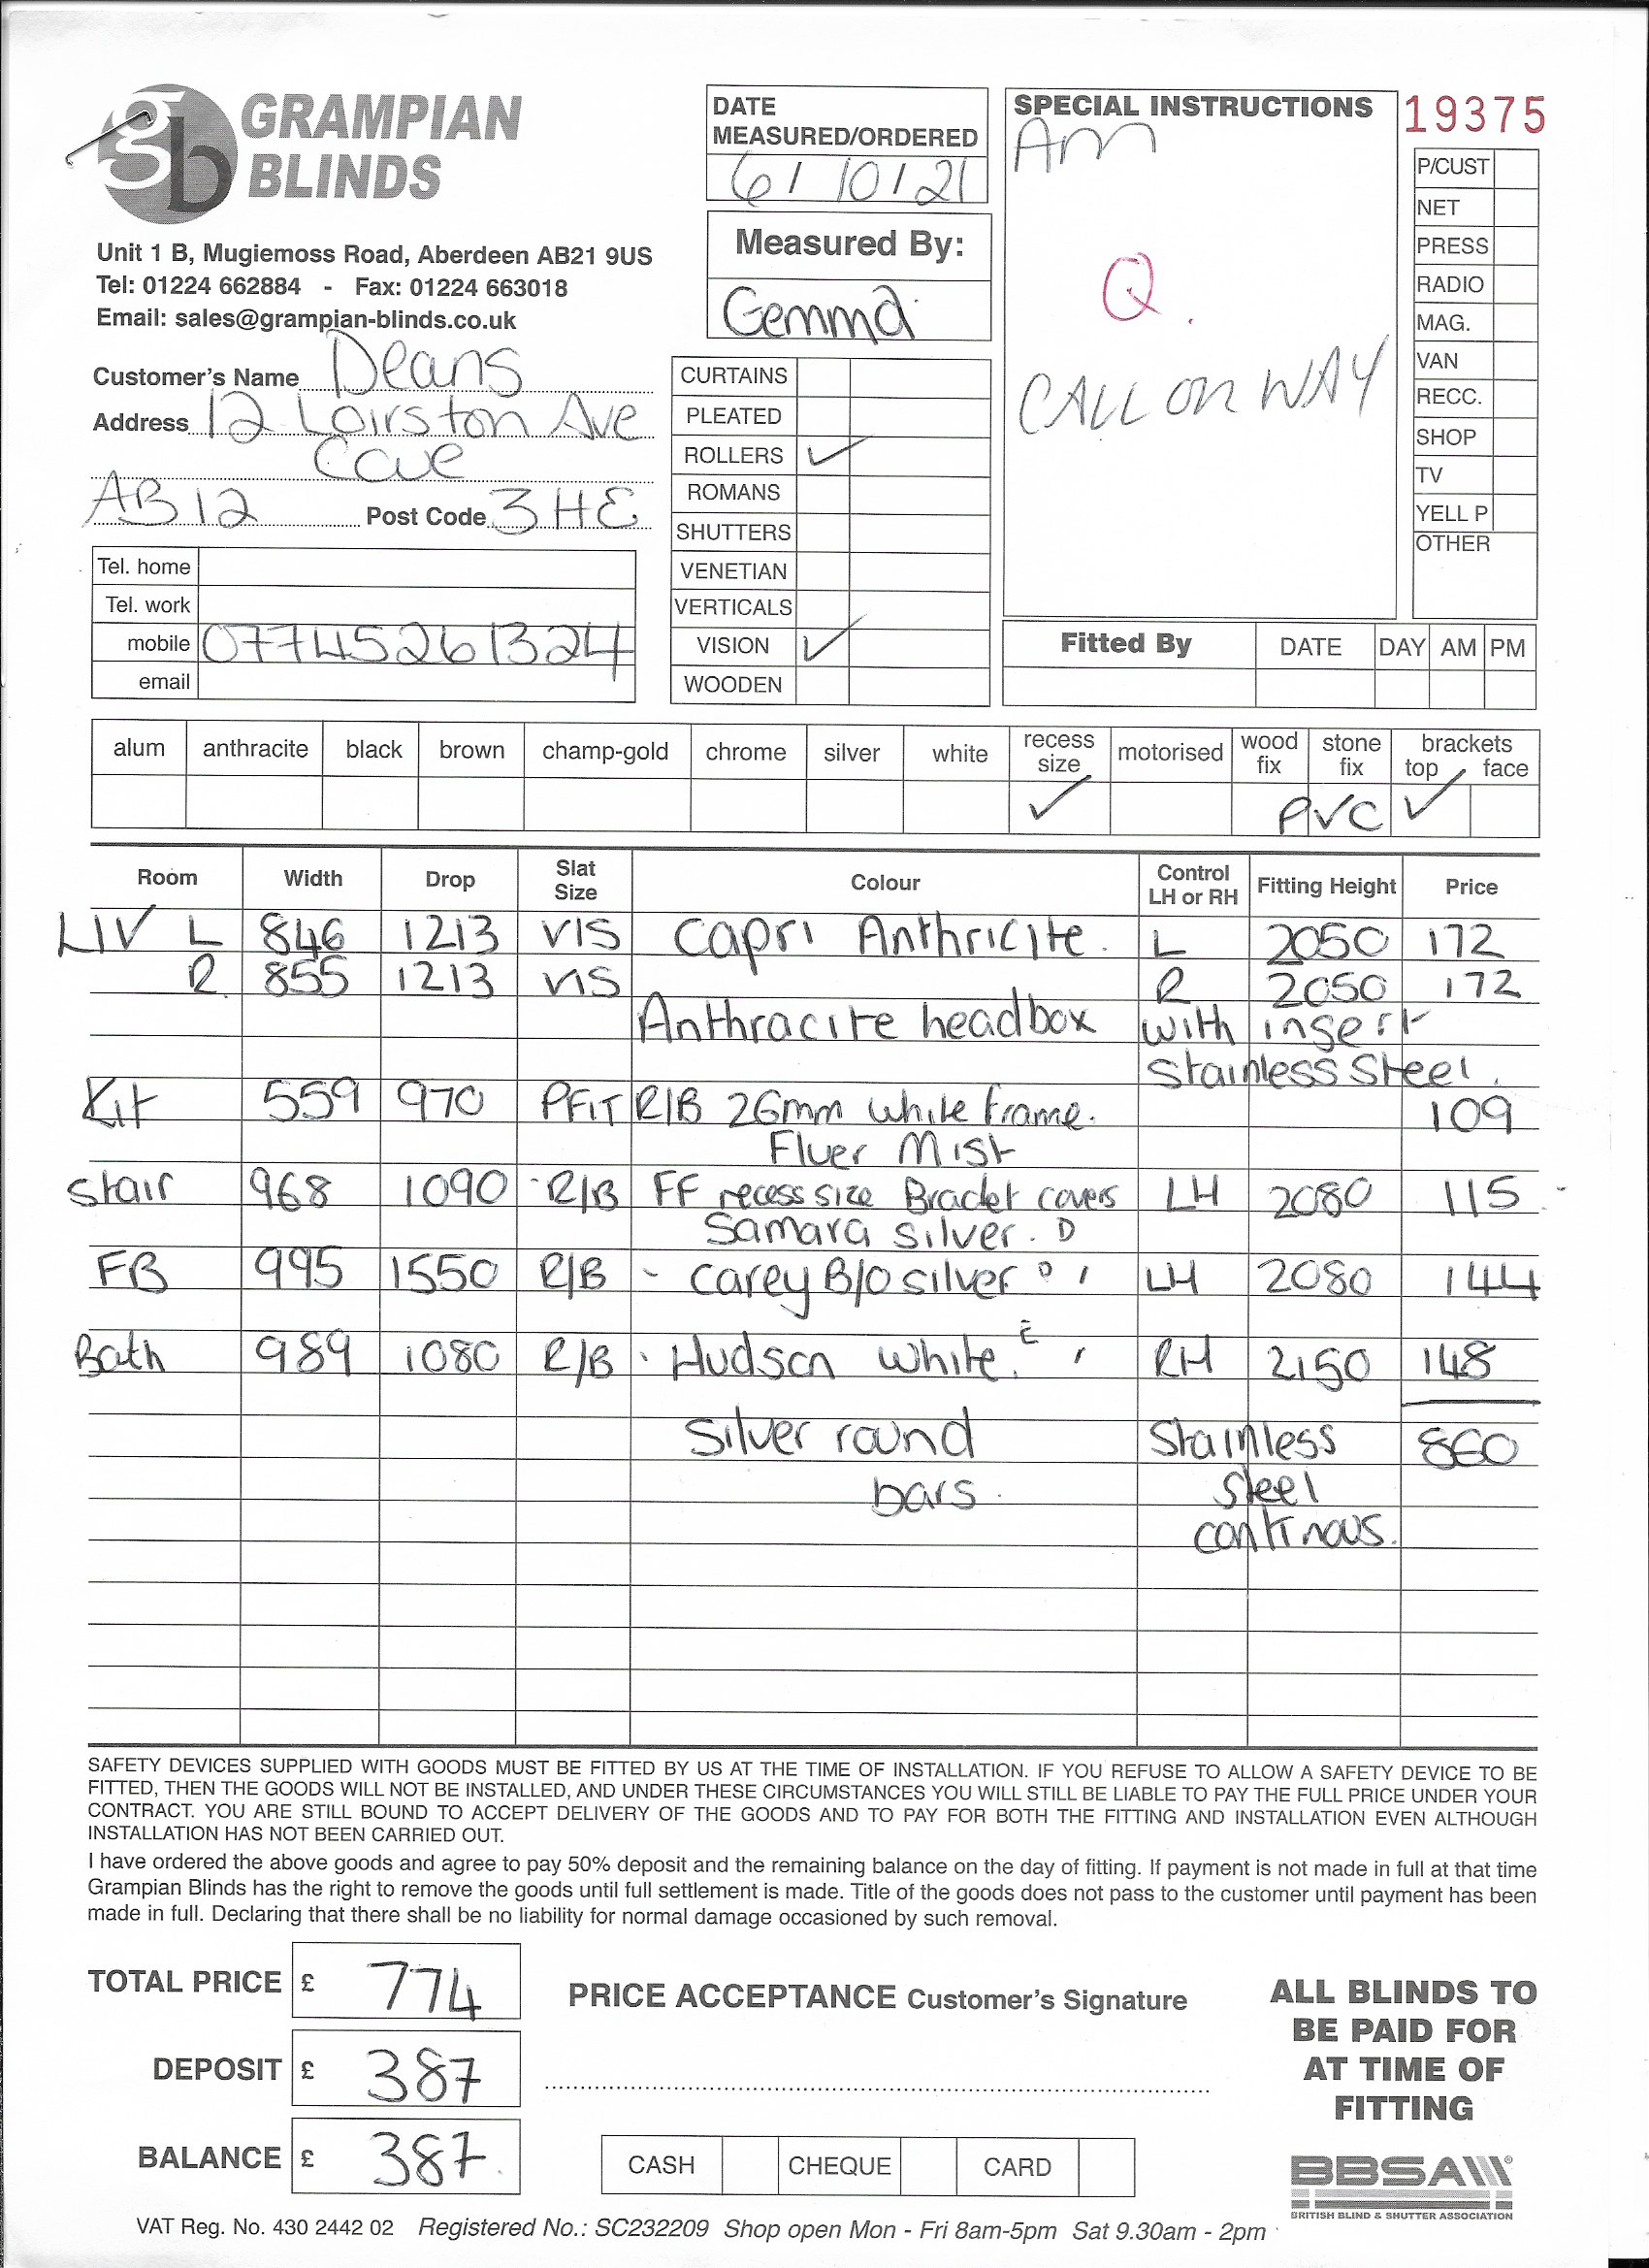 gb GRAMPIAN
BLINDS
Unit 1 B, Mugiemoss Road, Aberdeen AB21 9US
Tel: 01224 662884 - Fax: 01224 663018
Email: sales@grampian-blinds.co.uk
Customer's Name Deans
Address 12 Loirston Ave
Cove
AB12 Post Code 3HE
Tel. home
Tel. work
mobile 07745261324
email
DATE
MEASURED/ORDERED
6/10/21
Measured By:
Gemma
CURTAINS
PLEATED
ROLLERS ✓
ROMANS
SHUTTERS
VENETIAN
VERTICALS
VISION ✓
WOODEN
SPECIAL INSTRUCTIONS
AM
Q.
CALL ON WAY
19375
P/CUST
NET
PRESS
RADIO
MAG.
VAN
RECC.
SHOP
TV
YELL P
OTHER
Fitted By DATE DAY AM PM
alum anthracite black brown champ-gold chrome silver white recess size motorised wood fix stone fix brackets top face
✓ PVC ✓
Room Width Drop Slat Size Colour Control LH or RH Fitting Height Price
LIV L 846 1213 VIS Capri Anthricite. L 2050 172
R 855 1213 VIS R 2050 172
Anthracite headbox with insert
Stainless Steel.
Kit 559 970 PFIT R/B 26mm white frame. 109
Fluer Mist
Stair 968 1090 R/B FF recess size Bracket covers LH 2080 115
Samara silver. D
FB 995 1550 R/B - Carey B/O silver D LH 2080 144
Bath 989 1080 R/B Hudson White. E RH 2150 148
Silver round Stainless 860
bars. Steel
continous.
SAFETY DEVICES SUPPLIED WITH GOODS MUST BE FITTED BY US AT THE TIME OF INSTALLATION. IF YOU REFUSE TO ALLOW A SAFETY DEVICE TO BE
FITTED, THEN THE GOODS WILL NOT BE INSTALLED, AND UNDER THESE CIRCUMSTANCES YOU WILL STILL BE LIABLE TO PAY THE FULL PRICE UNDER YOUR
CONTRACT. YOU ARE STILL BOUND TO ACCEPT DELIVERY OF THE GOODS AND TO PAY FOR BOTH THE FITTING AND INSTALLATION EVEN ALTHOUGH
INSTALLATION HAS NOT BEEN CARRIED OUT.
I have ordered the above goods and agree to pay 50% deposit and the remaining balance on the day of fitting. If payment is not made in full at that time
Grampian Blinds has the right to remove the goods until full settlement is made. Title of the goods does not pass to the customer until payment has been
made in full. Declaring that there shall be no liability for normal damage occasioned by such removal.
TOTAL PRICE £ 774
DEPOSIT £ 387
BALANCE £ 387.
PRICE ACCEPTANCE Customer's Signature
CASH CHEQUE CARD
ALL BLINDS TO
BE PAID FOR
AT TIME OF
FITTING
BBSA
BRITISH BLIND & SHUTTER ASSOCIATION
VAT Reg. No. 430 2442 02 Registered No.: SC232209 Shop open Mon - Fri 8am-5pm Sat 9.30am - 2pm